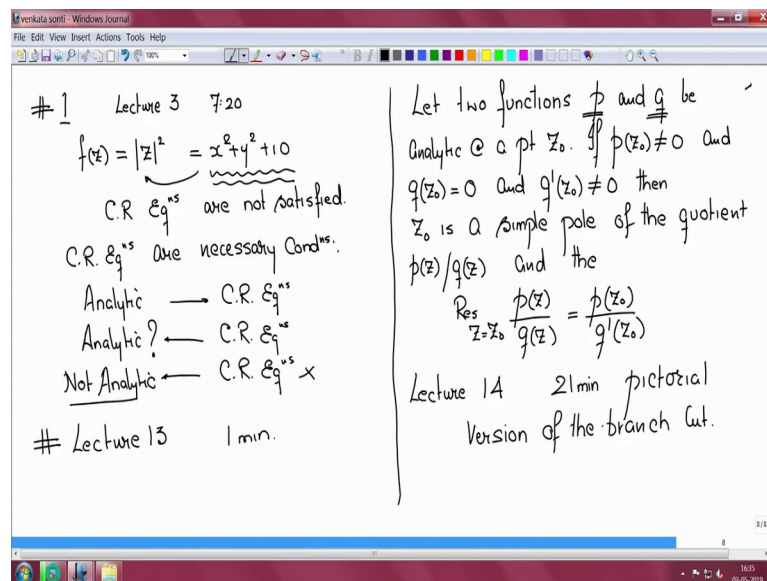 venkata sonti - Windows Journal
File Edit View Insert Actions Tools Help
100%
B I
# 1 Lecture 3 7:20
f(z) = |z|² = x²+y²+10
C.R Eqⁿˢ are not satisfied.
C.R. Eqⁿˢ are necessary Condⁿˢ.
Analytic → C.R. Eqⁿˢ
Analytic? ← C.R. Eqⁿˢ
Not Analytic ← C.R. Eqⁿˢ x
# Lecture 13 1 min.
Let two functions p and q be
analytic @ a pt Z₀. If p(Z₀)≠0 and
q(Z₀)=0 and q'(Z₀)≠0 then
Z₀ is a simple pole of the quotient
p(z)/q(z) and the
Res Z=Z₀ p(z)/q(z) = p(Z₀)/q'(Z₀)
Lecture 14 21min pictorial
Version of the branch Cut.
8/8
8
16:35
03-05-2019